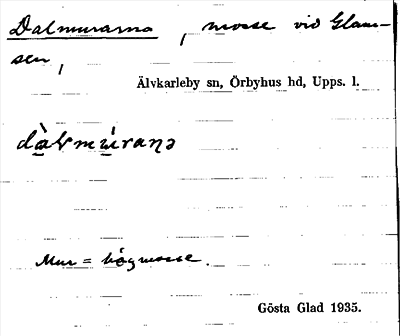 Dalmurarna, mosse vid Glam-
sen,
Älvkarleby sn, Örbyhus hd, Upps. l.
dàlmúraṇə
Mur = högmosse.
Gösta Glad 1935.